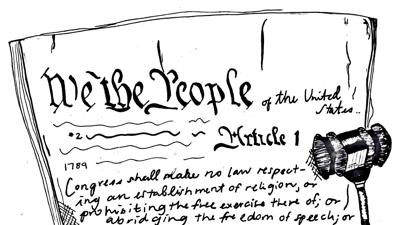 We the People of the United States..
#2
Article 1
1789
Congress shall make no law respect-
ing an establishment of religion, or
prohibiting the free exercise there of; or
abridging the freedom of speech; or